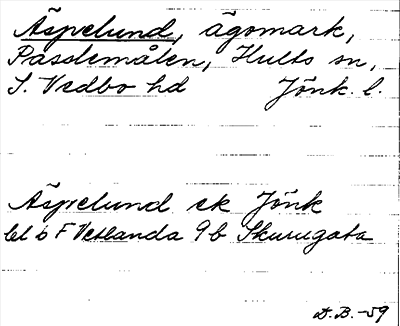 Äspelund, ägomark,
Passlemålen, Hults sn,
S. Vedbo hd Jönk. l.
Äspelund ek Jönk
bl b F Vetlanda 9b Skurugata
D.B.-59